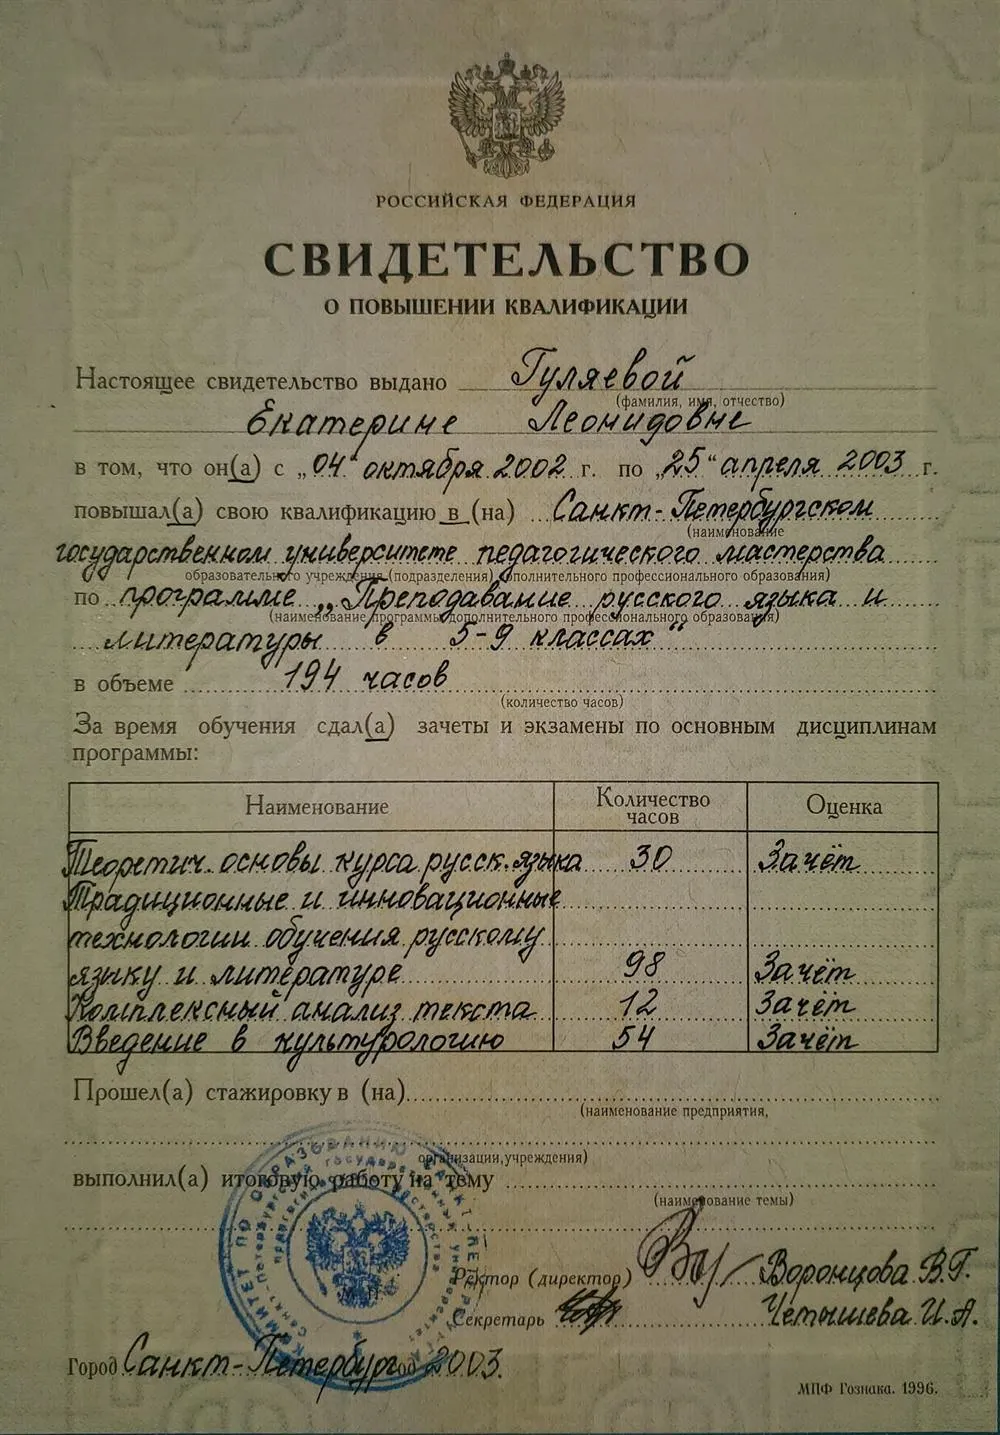 РОССИЙСКАЯ ФЕДЕРАЦИЯ
СВИДЕТЕЛЬСТВО
О ПОВЫШЕНИИ КВАЛИФИКАЦИИ
Настоящее свидетельство выдано Гуляевой
(фамилия, имя, отчество)
Екатерине Леонидовне
в том, что он(а) с „04“ октября 2002 г. по „25“ апреля 2003 г.
повышал(а) свою квалификацию в (на) Санкт-Петербургском
(наименование
государственном университете педагогического мастерства
образовательного учреждения (подразделения) дополнительного профессионального образования)
по программе „Преподавание русского языка и
(наименование программы дополнительного профессионального образования)
литературы в 5-9 классах“
в объеме 194 часов
(количество часов)
За время обучения сдал(а) зачеты и экзамены по основным дисциплинам
программы:
Наименование Количество часов Оценка
Теоретич. основы курса русск. языка 30 Зачёт
Традиционные и инновационные
технологии обучения русскому
языку и литературе 98 Зачёт
Комплексный анализ текста 12 Зачёт
Введение в культурологию 54 Зачёт
Прошел(а) стажировку в (на)
(наименование предприятия,
организации, учреждения)
выполнил(а) итоговую работу на тему
(наименование темы)
КОМИТЕТ ПО ОБРАЗОВАНИЮ САНКТ-ПЕТЕРБУРГ
М.П.
Ректор (директор) Воронцова В.Г.
Секретарь Четышева И.А.
Город Санкт-Петербург год 2003.
МПФ Гознака. 1996.